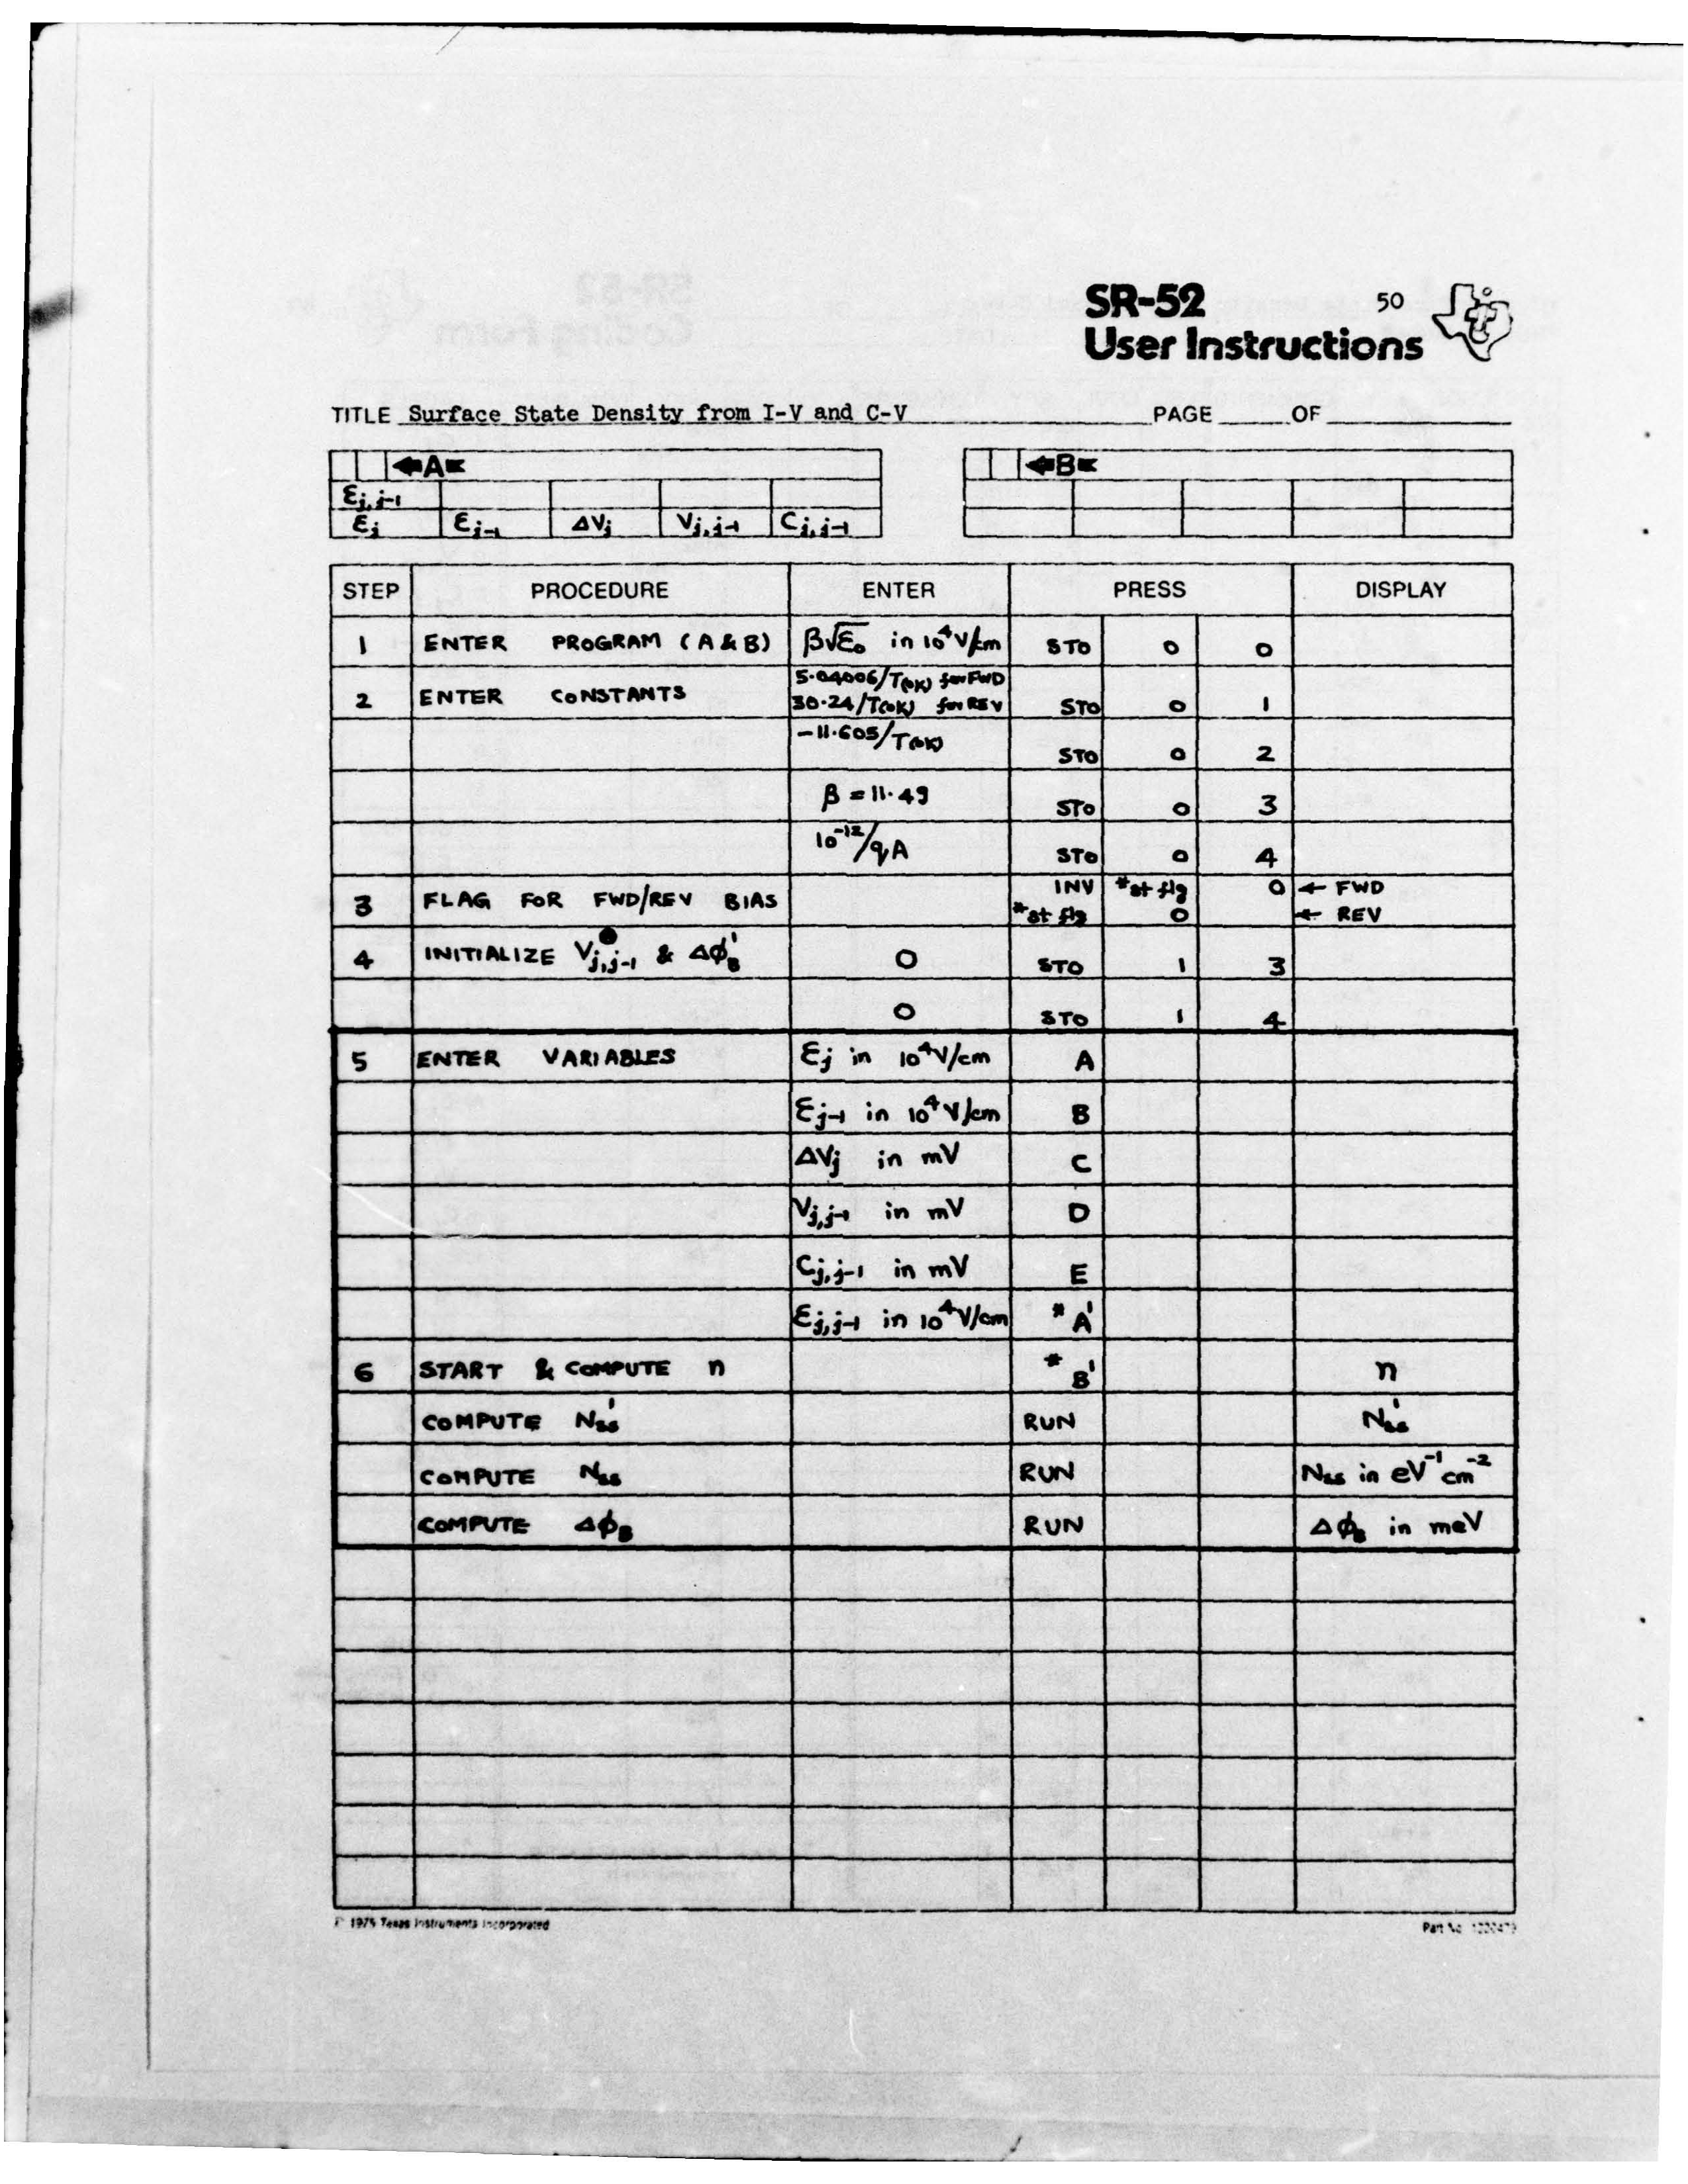 SR-52 50
User Instructions
TITLE Surface State Density from I-V and C-V PAGE OF
A B
Ɛj,j-1
Ɛj Ɛj-1 ΔVj Vj,j-1 Cj,j-1
STEP PROCEDURE ENTER PRESS DISPLAY
1 ENTER PROGRAM (A & B) β√Ɛo in 10⁴V/cm STO 0 0
5.04006/T(oK) for FWD
2 ENTER CONSTANTS 30.24/T(oK) for REV STO 0 1
-11.605/T(oK) STO 0 2
β = 11.49 STO 0 3
10⁻¹²/qA STO 0 4
3 FLAG FOR FWD/REV BIAS INV *st flg 0 ← FWD
*st flg 0 ← REV
4 INITIALIZE Vj,j-1 & Δϕ'B 0 STO 1 3
0 STO 1 4
5 ENTER VARIABLES Ɛj in 10⁴V/cm A
Ɛj-1 in 10⁴V/cm B
ΔVj in mV C
Vj,j-1 in mV D
Cj,j-1 in mV E
Ɛj,j-1 in 10⁴V/cm *A'
6 START & COMPUTE n *B' n
COMPUTE N'ss RUN N'ss
COMPUTE Nss RUN Nss in eV⁻¹cm⁻²
COMPUTE ΔϕB RUN ΔϕB in meV
1975 Texas Instruments Incorporated Part No.